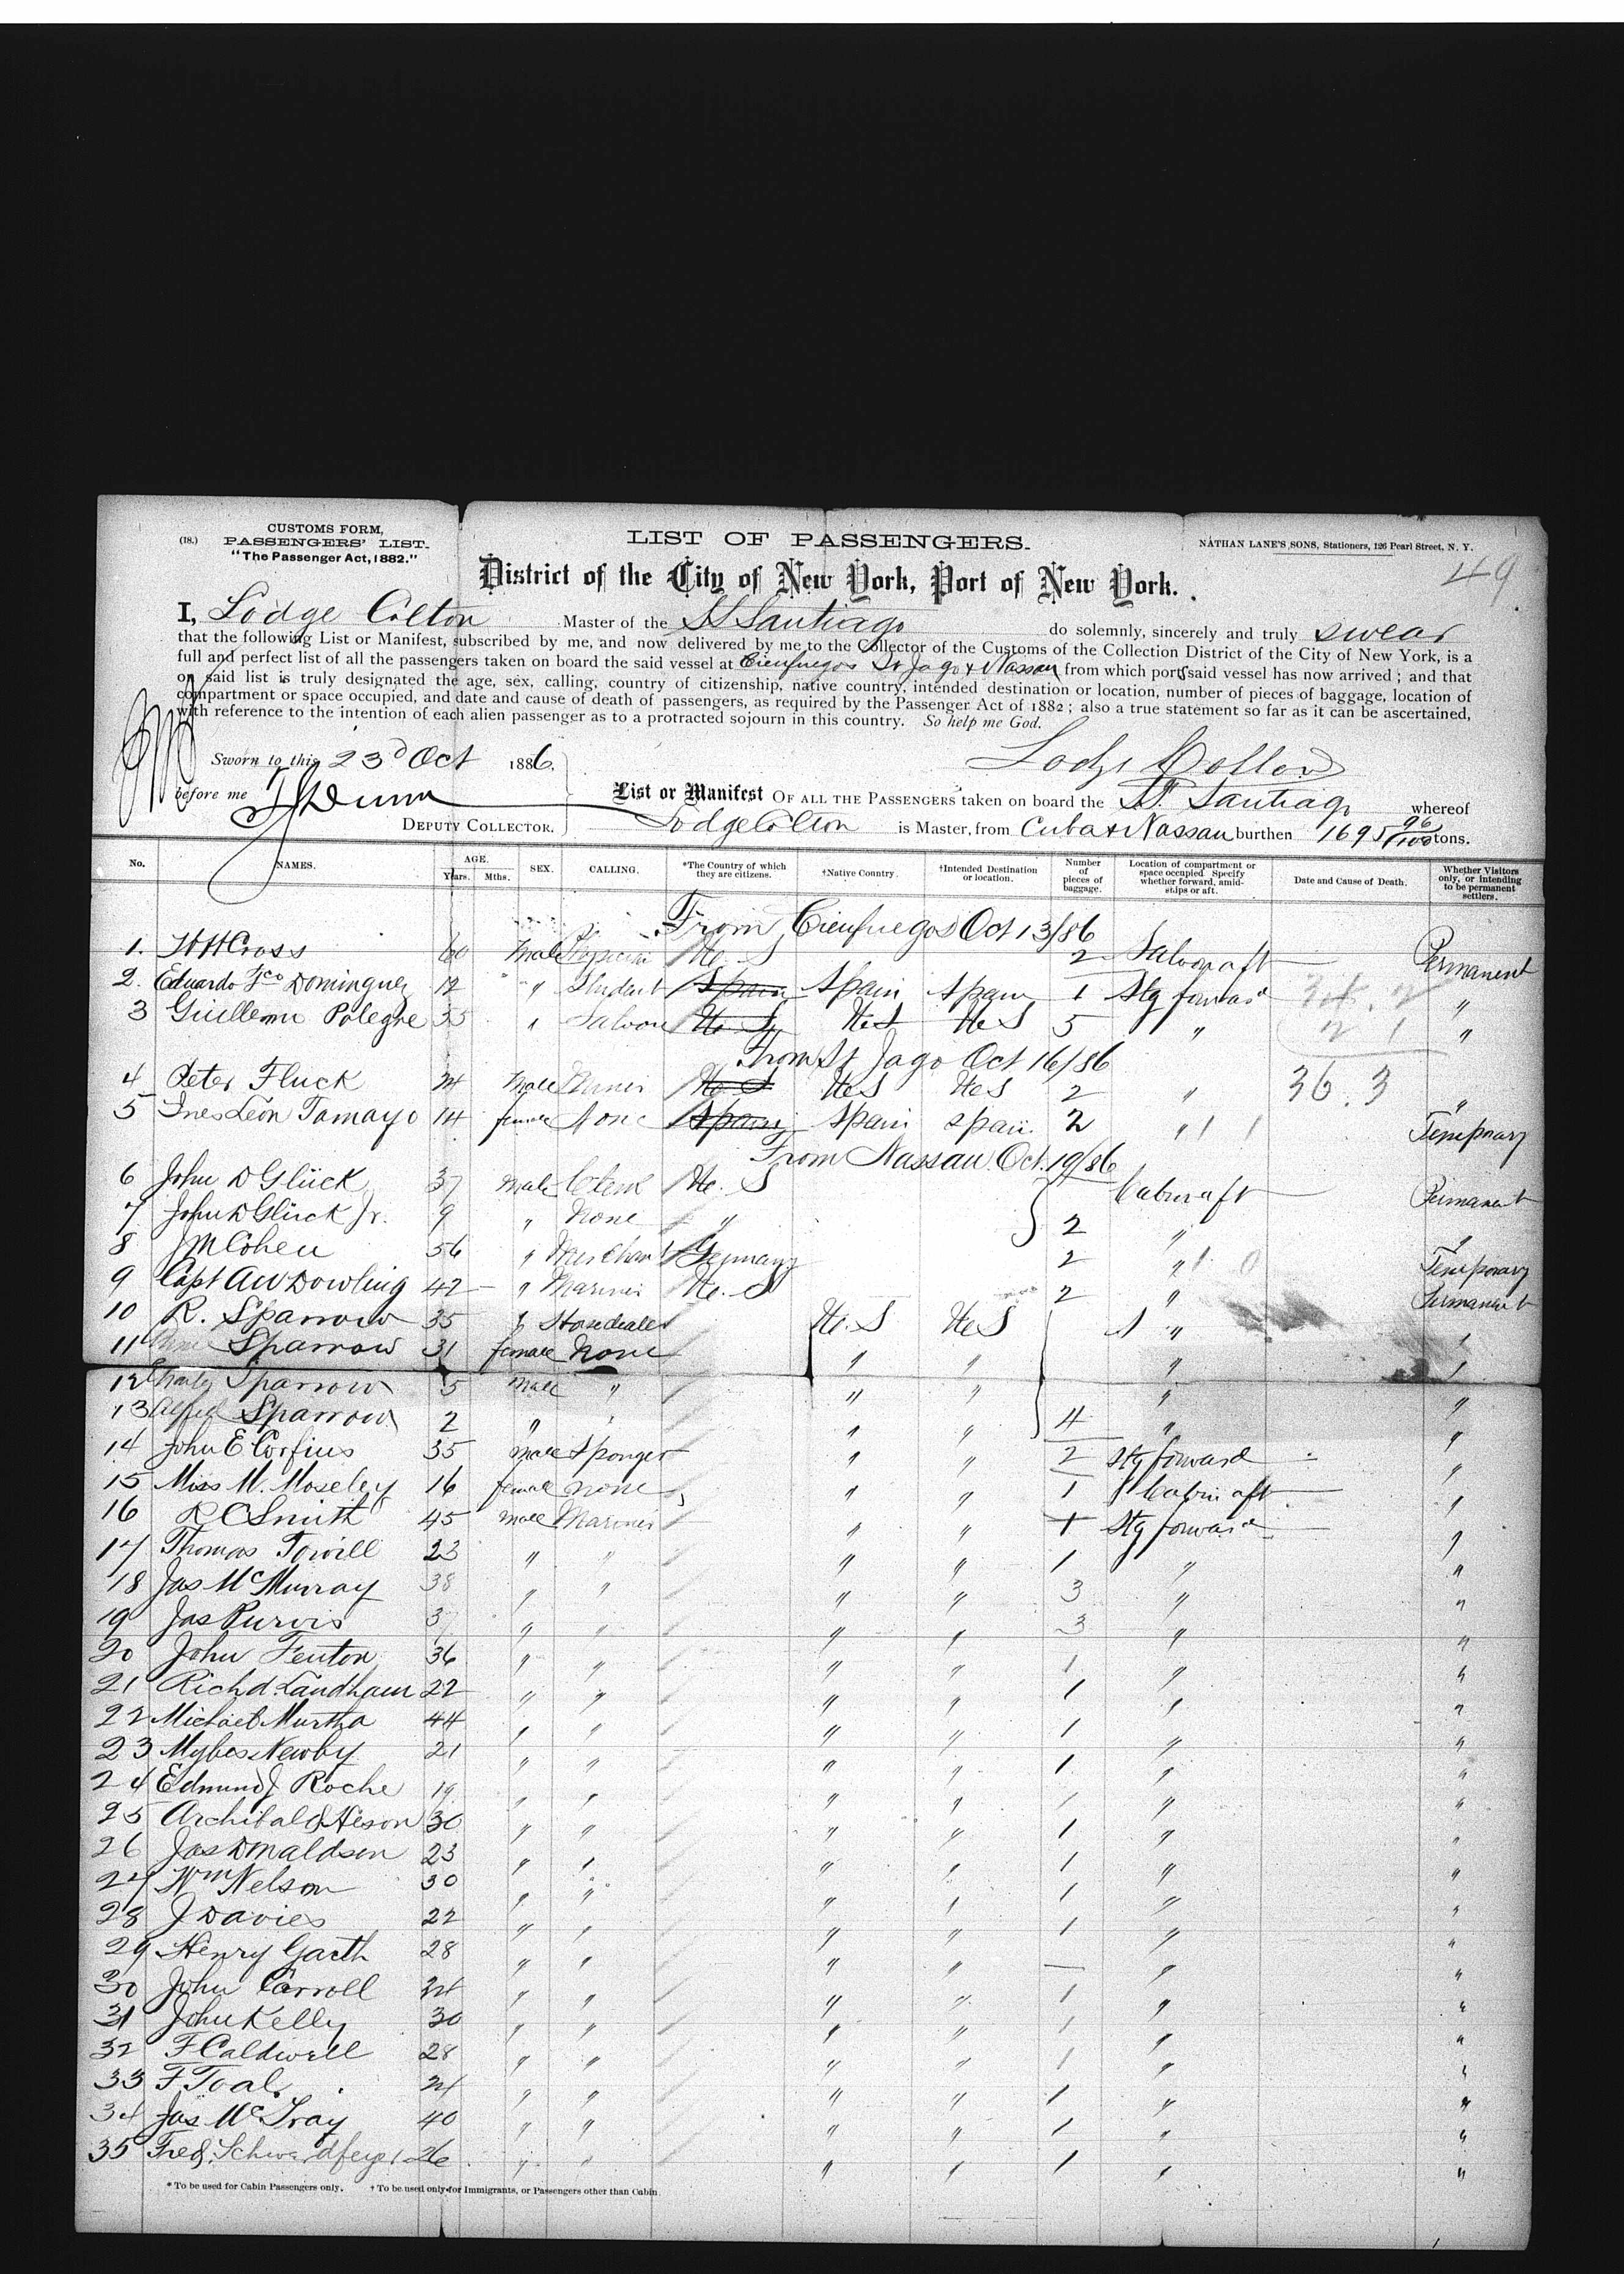 CUSTOMS FORM,
(18.) PASSENGERS' LIST.
"The Passenger Act, 1882."
LIST OF PASSENGERS.
NATHAN LANE'S SONS, Stationers, 126 Pearl Street, N. Y.
49
District of the City of New York, Port of New York.
I, Lodge Colton Master of the SS Santiago do solemnly, sincerely and truly swear
that the following List or Manifest, subscribed by me, and now delivered by me to the Collector of the Customs of the Collection District of the City of New York, is a
full and perfect list of all the passengers taken on board the said vessel at Cienfuegos St Jago & Nassau from which ports said vessel has now arrived; and that
on said list is truly designated the age, sex, calling, country of citizenship, native country, intended destination or location, number of pieces of baggage, location of
compartment or space occupied, and date and cause of death of passengers, as required by the Passenger Act of 1882; also a true statement so far as it can be ascertained,
with reference to the intention of each alien passenger as to a protracted sojourn in this country. So help me God.
Sworn to this 23d Oct 1886.
Lodge Colton
before me Dunn
DEPUTY COLLECTOR.
List or Manifest OF ALL THE PASSENGERS taken on board the SS Santiago whereof
Lodge Colton is Master, from Cuba & Nassau burthen 1695 96/100 tons.
No. NAMES. AGE. Years. Mths. SEX. CALLING. *The Country of which they are citizens. †Native Country. †Intended Destination or location. Number of pieces of baggage. Location of compartment or space occupied. Specify whether forward, amidships or aft. Date and Cause of Death. Whether Visitors only, or intending to be permanent settlers.
From Cienfuegos Oct 13/86
1. Cross 60 Male U. S 2 Saloon aft Permanent
2. Eduardo Fco Dominguez 12 " Student Spain Spain Spain 1 Stg forward "
3 Guillermo Polegre 35 " U. S U S U S 5 " "
From St Jago Oct 16/86
36.3
4 Peter Fluck 24 Male Miner U S U S U S 2 " "
5 Ines Leon Tamayo 14 female None Spain Spain Spain 2 " Temporary
From Nassau Oct. 19/86
6 John D Glück 37 Male Clerk U. S Cabin aft Permanent
7 John D Glück Jr. 9 " None " 2 " "
8 J M Cohen 56 " Merchant Germany 2 " Temporary
9 Capt A W Dowling 42 " Mariner U. S 2 " Permanent
10 R. Sparrow 35 " U. S U S " "
11 Sparrow 31 female None " " " "
12 Charley Sparrow 5 Male " " " " "
13 Alfred Sparrow 2 " " " " 4 " "
14 John E Corfius 35 male Sponger " " 2 Stg forward "
15 Miss M. Moseley 16 female none " " 1 Cabin aft "
16 R C Smith 45 Male Mariner " " 1 Stg forward "
17 Thomas Towill 23 " " " " 1 " "
18 Jas McMurray 38 " " " " 3 " "
19 Jas Purvis 37 " " " " 3 " "
20 John Fenton 36 " " " " 1 " "
21 Richd. Landham 22 " " " " 1 " "
22 Michael Murtha 44 " " " " 1 " "
23 Myles Newby 21 " " " " 1 " "
24 Edmund J Roche 19 " " " " 1 " "
25 Archibald 30 " " " " 1 " "
26 Jas Donaldson 23 " " " " 1 " "
27 Wm Nelson 30 " " " " 1 " "
28 J Davies 22 " " " " 1 " "
29 Henry Garth 28 " " " " — " "
30 John Carroll 24 " " " " 1 " "
31 John Kelly 30 " " " " 1 " "
32 F Caldwell 28 " " " " 1 " "
33 F Toal. 24 " " " " 1 " "
34 Jas 40 " " " " 1 " "
35 Fred. 26 " " " " 1 " "
* To be used for Cabin Passengers only. † To be used only for Immigrants, or Passengers other than Cabin.